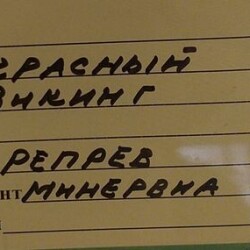 КРАСНЫЙ
ВИКИНГ
РЕПРЕВ
НТ МИНЕРВИА